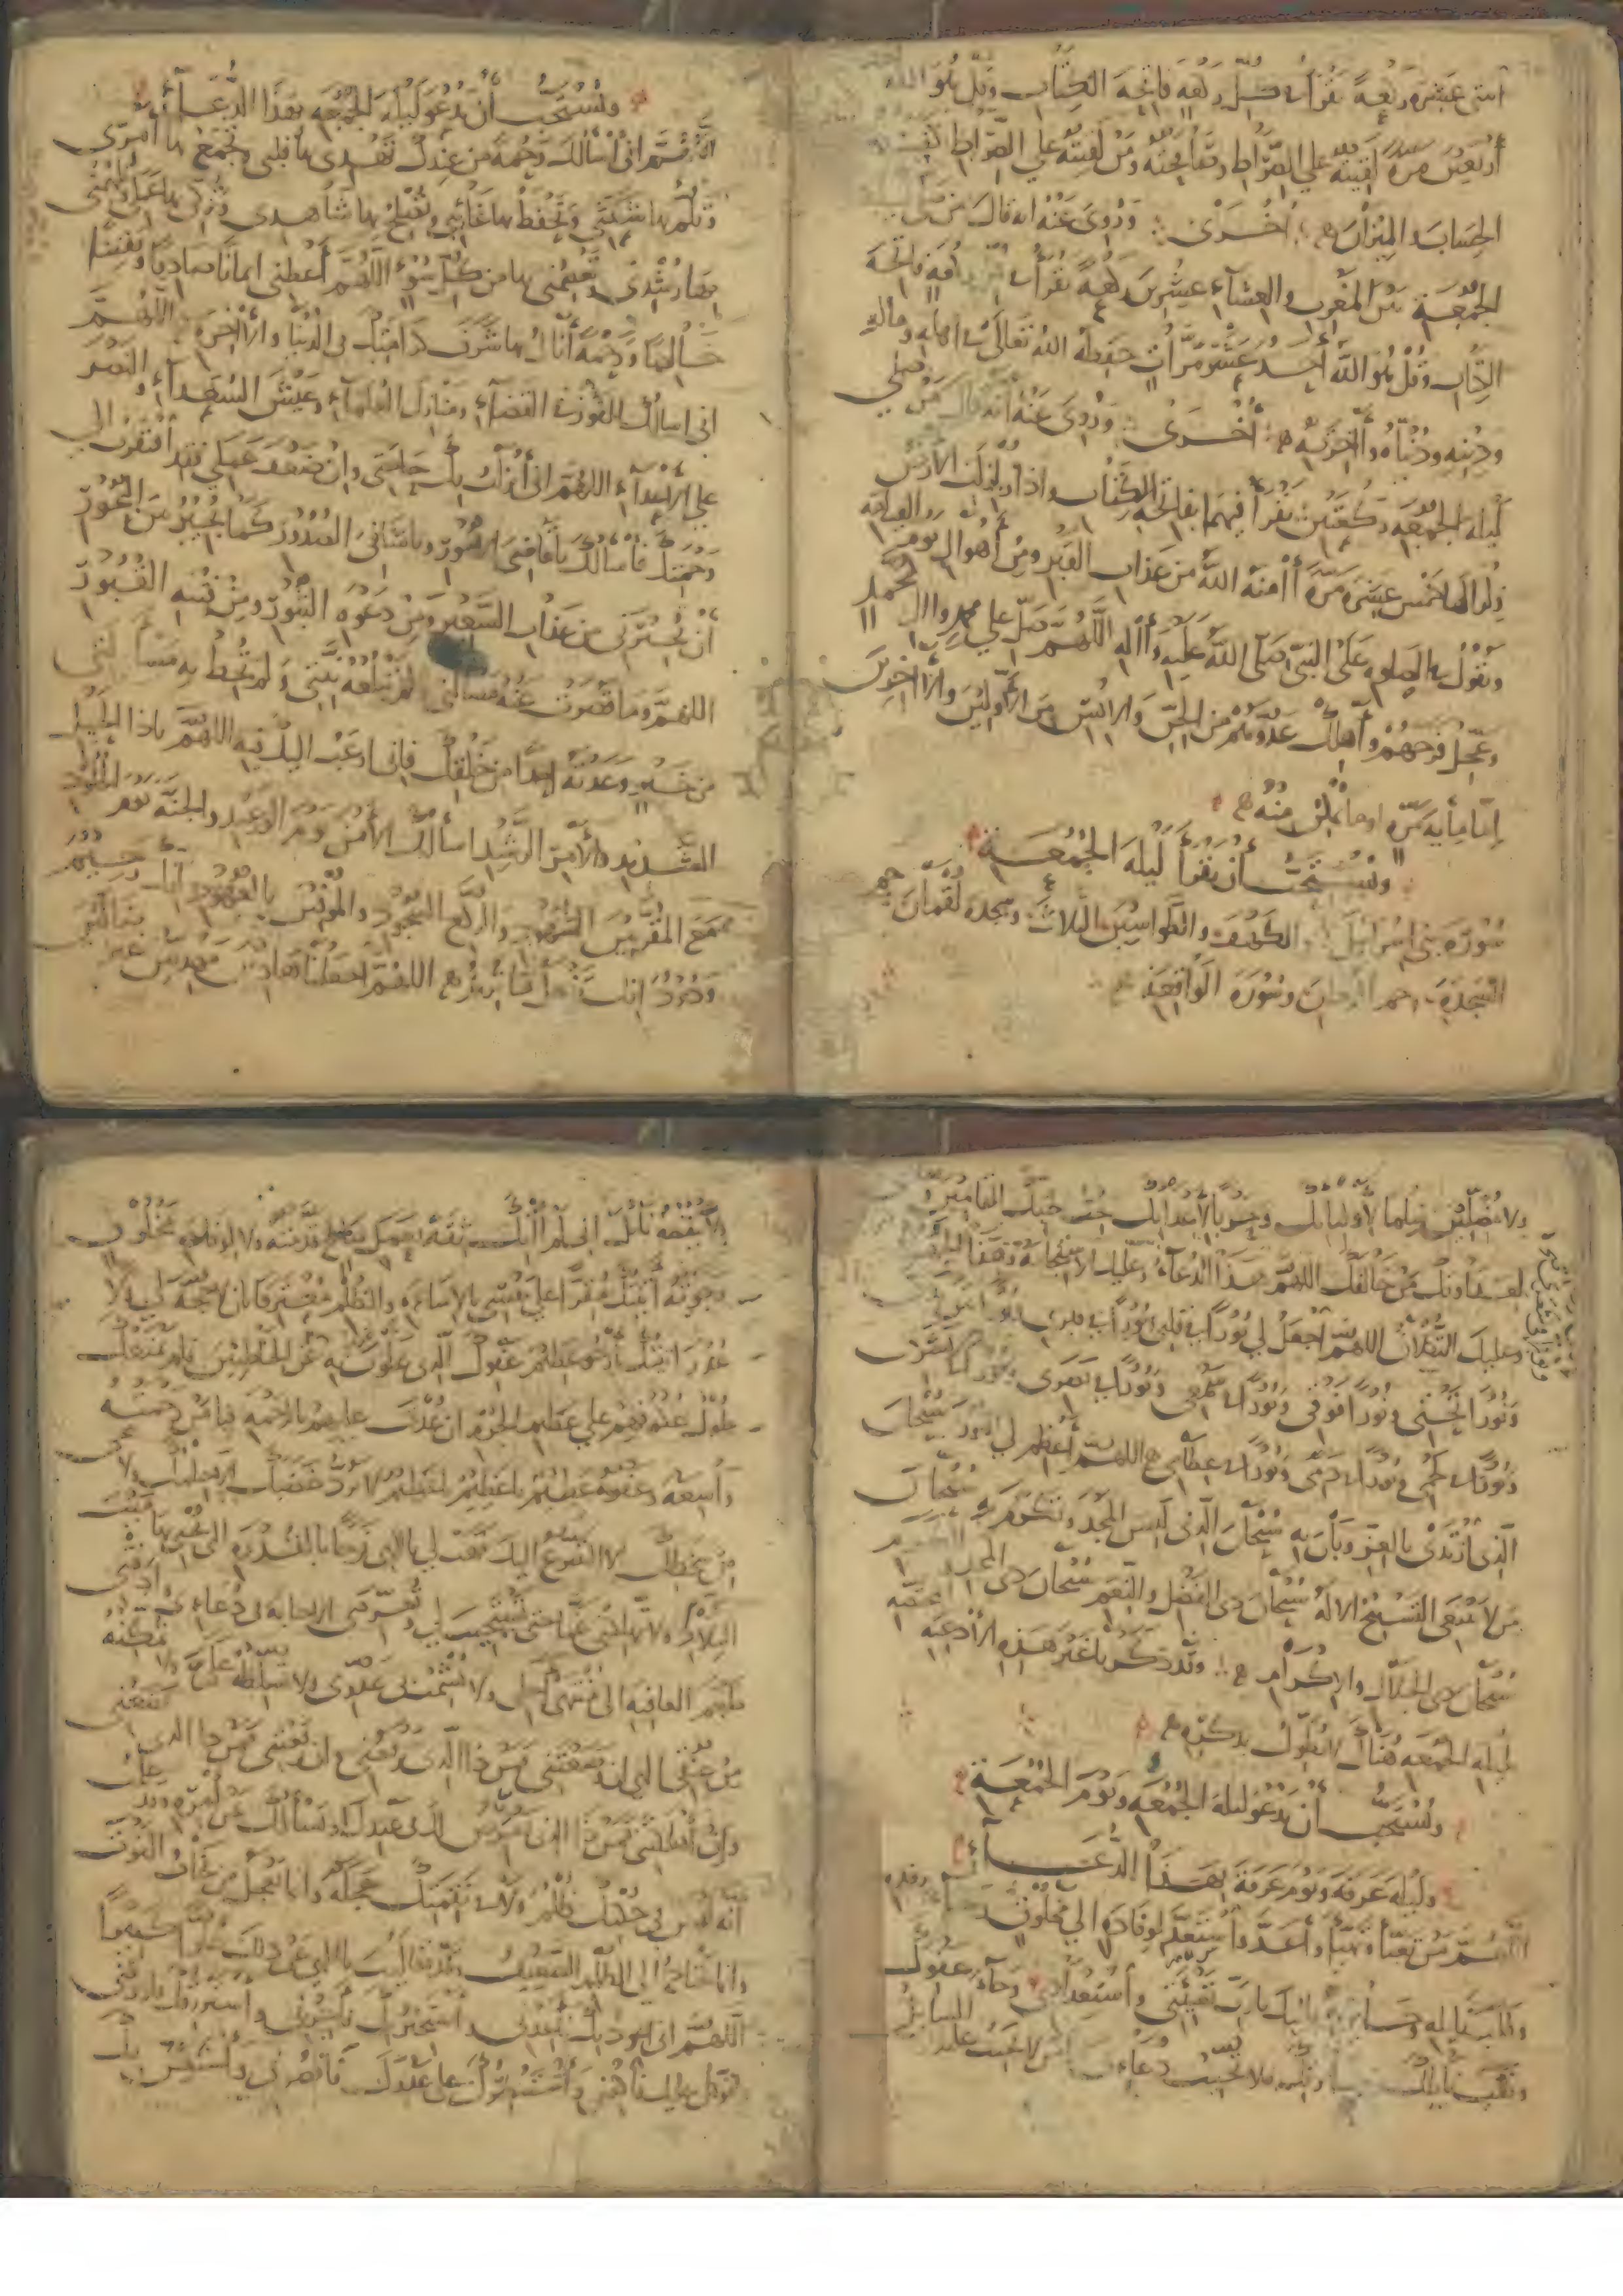 اثنتي عشرة ركعة تقرأ في كل ركعة فاتحة الكتاب وقل هو الله
أربعين مرة لقيته على الصراط وصافحته ومن لقيته على الصراط كفيته
الحساب والميزان أخرى وروي عنه انه قال من صلى
الجمعة بين المغرب والعشاء عشرين ركعة تقرأ في كل ركعة فاتحة
الكتاب وقل هو الله أحد عشر مرات حفظه الله تعالى في اهله وماله
ودينه ودنياه وآخرته أخرى وروي عنه أنه قال من صلى
ليلة الجمعة ركعتين تقرأ فيهما بفاتحة الكتاب واذا زلزلت الأرض
زلزالها خمس عشرة مرة آمنه الله من عذاب القبر ومن أهوال يوم القيامة
وتقول في الصلوة على النبي صلى الله عليه وآله اللهم صل على محمد وآل محمد
وعجل فرجهم وأهلك عدوهم من الجن والإنس من الأولين والآخرين
إما مأية مرة او ما تمكن منه
ويستحب أن تقرأ ليلة الجمعة
سورة بني اسرائيل والكهف والطواسين الثلاث وسجدة لقمان وحم
السجدة وحم الدخان وسورة الواقعة
ويستحب أن يدعو ليلة الجمعة بهذا الدعاء
اللهم اني أسألك رحمة من عندك تهدي بها قلبي وتجمع بها أمري
وتلم بها شعثي وتحفظ بها غائبي وتصلح بها شاهدي وتزكي بها عملي وتلهمني
بها رشدي وتعصمني بها من كل سوء اللهم أعطني ايمانا صادقا ويقينا
خالصا ورحمة أنال بها شرف كرامتك في الدنيا والآخرة اللهم
اني اسالك الفوز في القضاء ومنازل العلماء وعيش السعداء والنصر
على الأعداء اللهم اني أنزلت بك حاجتي وان ضعف عملي فقد افتقرت الى
رحمتك فأسالك يا قاضي الأمور ويا شافي الصدور كما تجير بين البحور
أن تجيرني من عذاب السعير ومن دعوة الثبور ومن فتنة القبور
اللهم وما قصرت عنه مسألتي ولم تبلغه نيتي ولم تحط به مسألتي
من خير وعدته احدا من خلقك فاني ارغب اليك فيه اللهم ياذا الحبل
الشديد والأمر الرشيد اسألك الأمن يوم الوعيد والجنة يوم الخلود
مع المقربين الشهود والركع السجود والموفين بالعهود انك رحيم
ودود انك تفعل ما تريد اللهم اجعلنا هادين مهديين غير ضالين
ولا مضلين سلما لأوليائك وحربا لأعدائك نحب بحبك التائبين و
نعادي بعداوتك من خالفك اللهم هذا الدعاء وعليك الاستجابة وهذا الجهد
وعليك التكلان اللهم اجعل لي نورا في قلبي ونورا في قبري
ونورا تحتي ونورا فوقي ونورا في سمعي ونورا في بصري ونورا في شعري
ونورا في لحمي ونورا في دمي ونورا في عظامي اللهم أعظم لي النور سبحان
الذي ارتدى بالعز وبان به سبحان الذي لبس المجد وتكرم به سبحان
من لا ينبغي التسبيح الا له سبحان ذي الفضل والنعم سبحان ذي المجد والكرم
سبحان ذي الجلال والإكرام وقد ذكرنا غير هذه الأدعية
ليلة الجمعة هناك لا نطول بذكره
ويستحب أن يدعو ليلة الجمعة ويوم الجمعة
وليلة عرفة ويوم عرفة بهذا الدعاء
اللهم من تعبأ وتهيأ وأعد واستعد لوفادة إلى مخلوق
وطلب نائله فاليك يا رب تعبيتي واستعدادي رجاء عفوك
فلا تخيب دعائي
لا ينقصه نائل اني لم آتك ثقة بعمل صالح قدمته ولا لوفادة مخلوق
رجوته أتيتك مقرا على نفسي بالإساءة والظلم معترفا بان لا حجة لي ولا
عذر اتيتك أرجو عظيم عفوك الذي علوت به عن الخاطئين فلم يمنعك
طول عكوفهم على عظيم الجرم ان عدت عليهم بالرحمة فيا من رحمته
واسعة وعفوه عظيم يا عظيم يا عظيم لا يرد غضبك الا حلمك ولا
من سخطك الا التضرع اليك فهب لي يا الهي فرجا بالقدرة التي تحيي بها ميت
البلاد ولا تهلكني غما حتى تستجيب لي وتعرفني الإجابة في دعائي وأذقني
طعم العافية الى منتهى أجلي ولا تشمت بي عدوي ولا تسلطه علي ولا تمكنه
من عنقي الهي ان وضعتني فمن ذا الذي يرفعني وان رفعتني فمن ذا الذي يضعني
وان أهلكتني فمن ذا الذي يعرض لك في عبدك او يسألك عن أمره وقد علمت
أنه ليس في حكمك ظلم ولا في نقمتك عجلة وانما يعجل من يخاف الفوت
وانما يحتاج الى الظلم الضعيف وقد تعاليت يا الهي عن ذلك علوا كبيرا
اللهم اني اعوذ بك فأعذني واستجير بك فأجرني واسترزقك فارزقني
واتوكل عليك فاكفني وأستنصرك على عدوك فانصرني واستعين بك